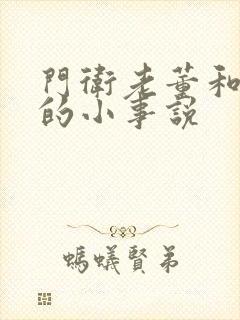 門衛老董和
的小事説
螞蟻賢弟